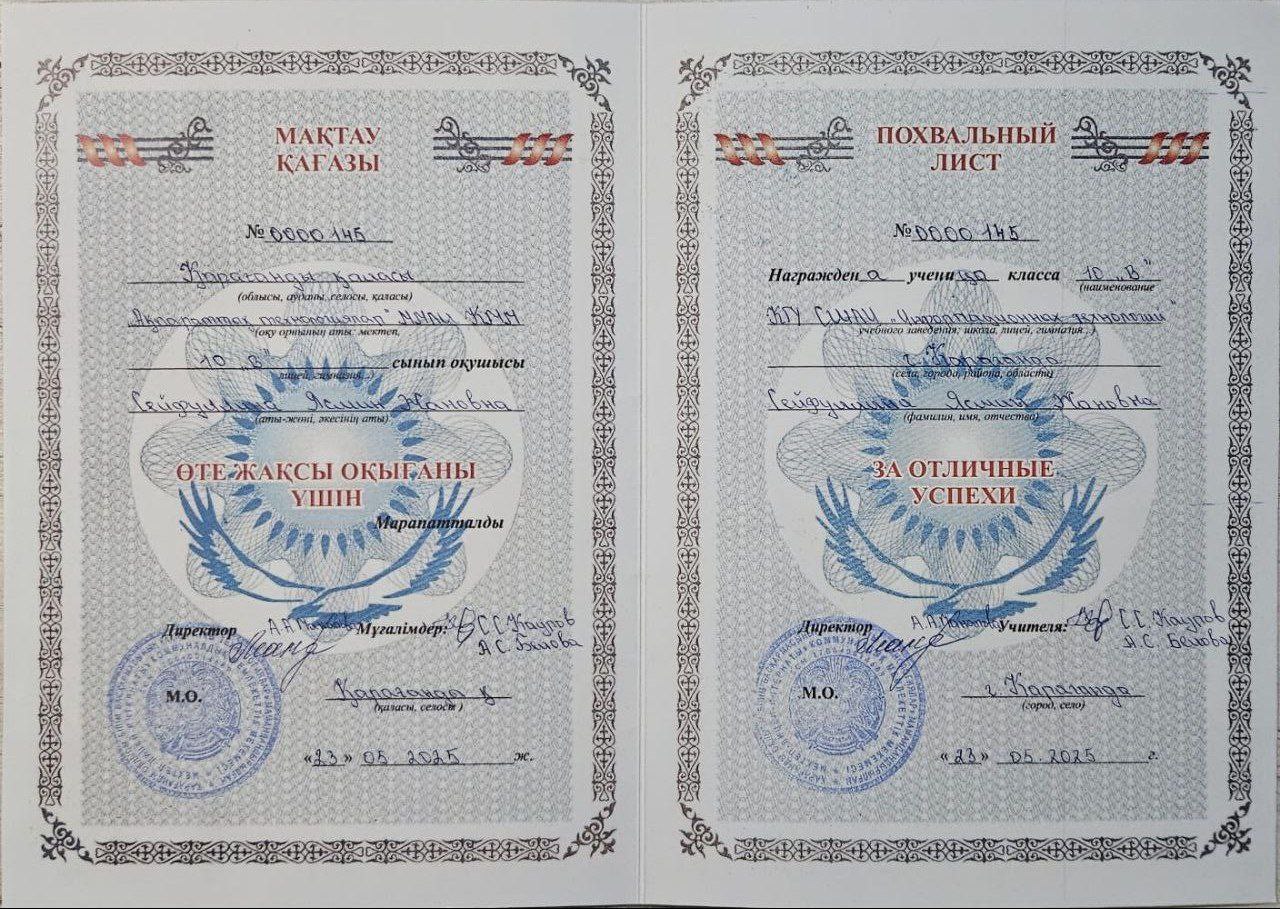 МАҚТАУ
ҚАҒАЗЫ
№ 0000 145
Қарағанды қаласы
(облысы, ауданы, селосы, қаласы)
Ақпараттық технологиялар" КММ
(оқу орнының аты: мектеп,
10 „В" сынып оқушысы
лицей, гимназия...)
Сейфуллина Ясмин Жановна
(аты-жөні, әкесінің аты)
ӨТЕ ЖАҚСЫ ОҚЫҒАНЫ
ҮШІН
Марапатталды
Директор А.А. Мұғалімдер: С.С. Каупов
А.С. Бекова
М.О.
Қарағанда қ
(қаласы, селосы)
«23» 05 2025 ж.
ПОХВАЛЬНЫЙ
ЛИСТ
№ 0000 145
Награжден а учени ца класса 10 „В"
(наименование
КГУ „Информационных технологий"
учебного заведения; школа, лицей, гимназия...)
г. Караганда
(села, города, района, области)
Сейфуллина Ясмин Жановна
(фамилия, имя, отчество)
ЗА ОТЛИЧНЫЕ
УСПЕХИ
Директор А.А. Учителя: С.С. Каупов
А.С. Бекова
М.О.
г. Караганда
(город, село)
«23» 05. 2025 г.